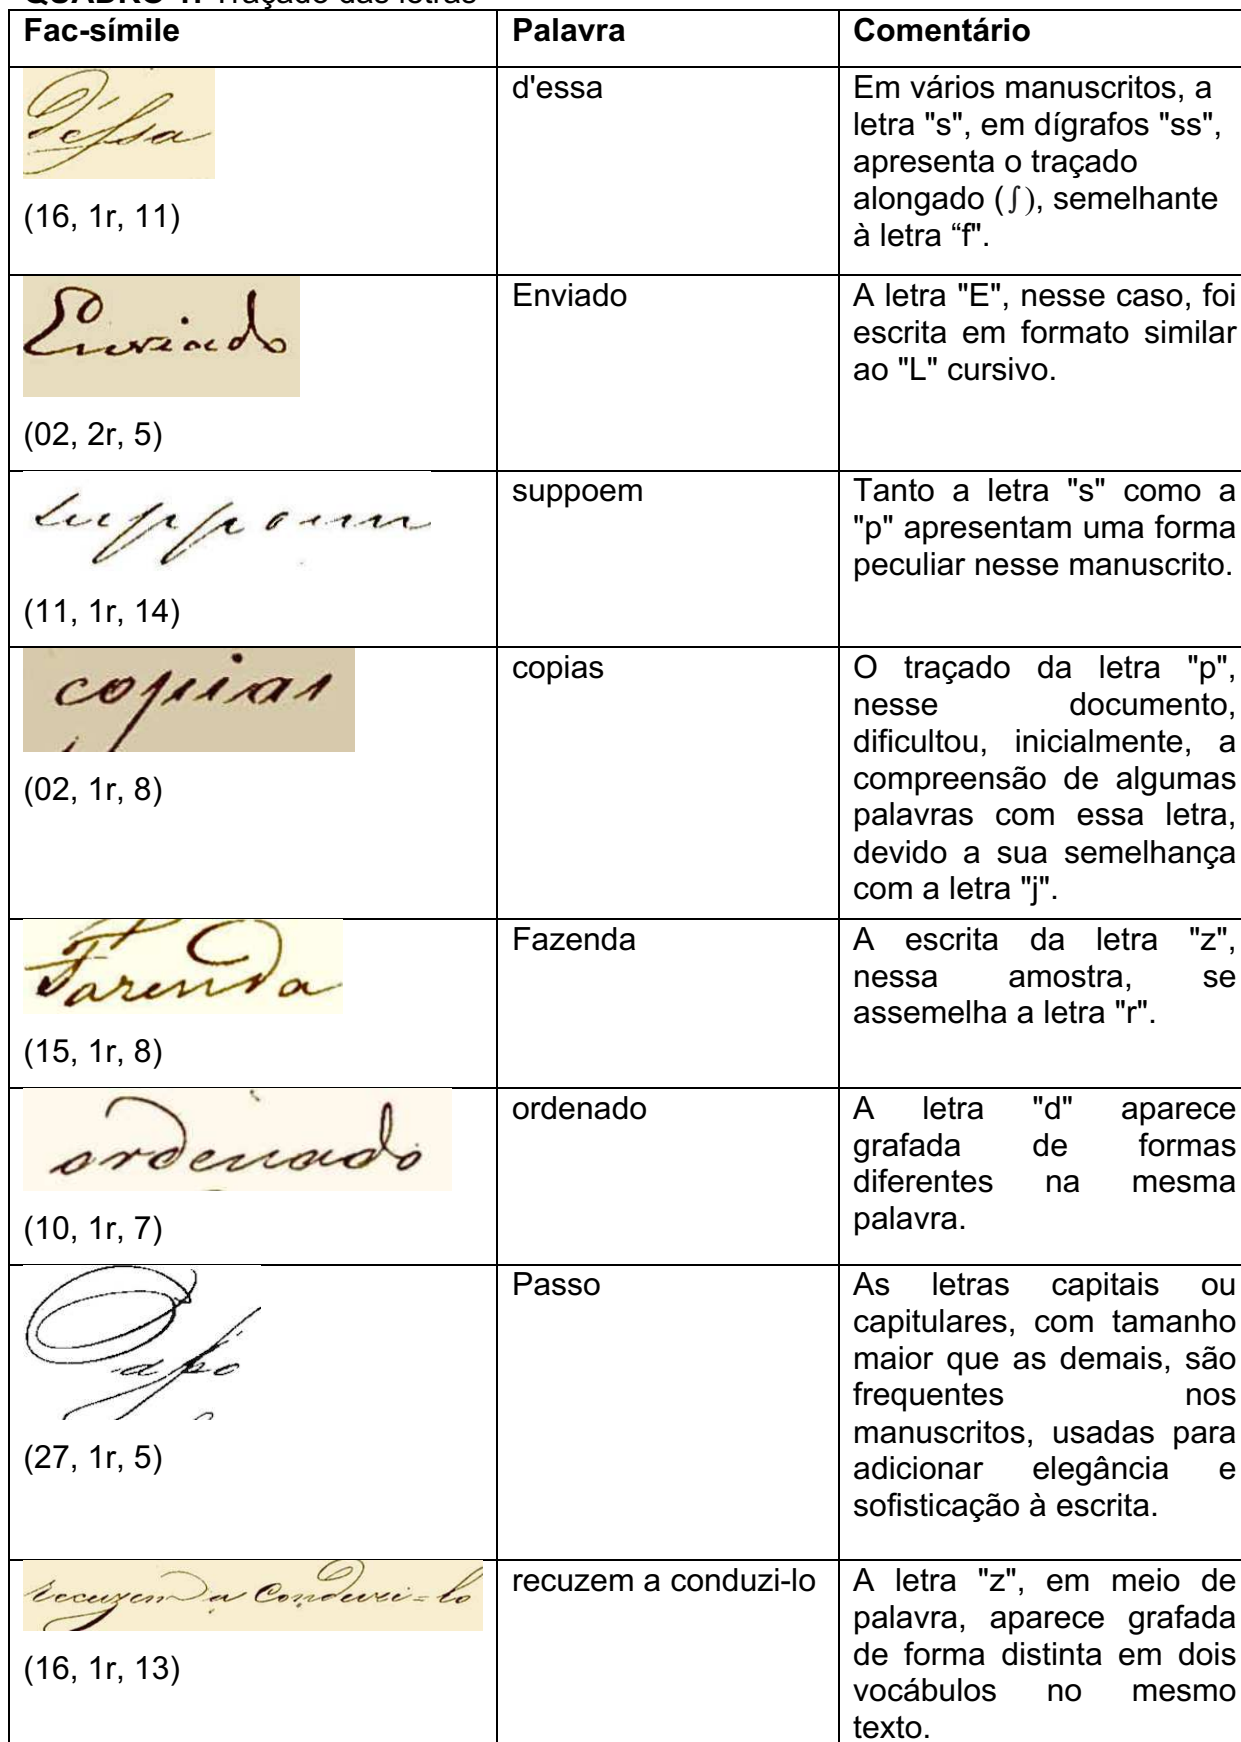 QUADRO 1: Traçado das letras
Fac-símile Palavra Comentário
d'essa
(16, 1r, 11)
d'essa
Em vários manuscritos, a
letra "s", em dígrafos "ss",
apresenta o traçado
alongado (ʃ), semelhante
à letra “f".
Enviado
(02, 2r, 5)
Enviado
A letra "E", nesse caso, foi
escrita em formato similar
ao "L" cursivo.
suppoem
(11, 1r, 14)
suppoem
Tanto a letra "s" como a
"p" apresentam uma forma
peculiar nesse manuscrito.
copias
(02, 1r, 8)
copias
O traçado da letra "p",
nesse documento,
dificultou, inicialmente, a
compreensão de algumas
palavras com essa letra,
devido a sua semelhança
com a letra "j".
Fazenda
(15, 1r, 8)
Fazenda
A escrita da letra "z",
nessa amostra, se
assemelha a letra "r".
ordenado
(10, 1r, 7)
ordenado
A letra "d" aparece
grafada de formas
diferentes na mesma
palavra.
Passo
(27, 1r, 5)
Passo
As letras capitais ou
capitulares, com tamanho
maior que as demais, são
frequentes nos
manuscritos, usadas para
adicionar elegância e
sofisticação à escrita.
recuzem a Conduzi=lo
(16, 1r, 13)
recuzem a conduzi-lo
A letra "z", em meio de
palavra, aparece grafada
de forma distinta em dois
vocábulos no mesmo
texto.